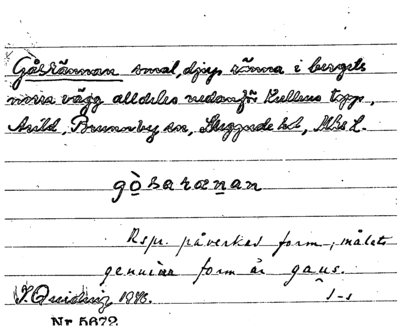 Gåsrännan smal, djup ränna i bergets
norra vägg alldeles nedanför Kullens topp,
Arild, Brunnby sn, Luggude hd, Mhs l.
gòsarænan
Rspr. påverkad form; målets
genuina form är gaus.
1898. I-s
Nr 5672